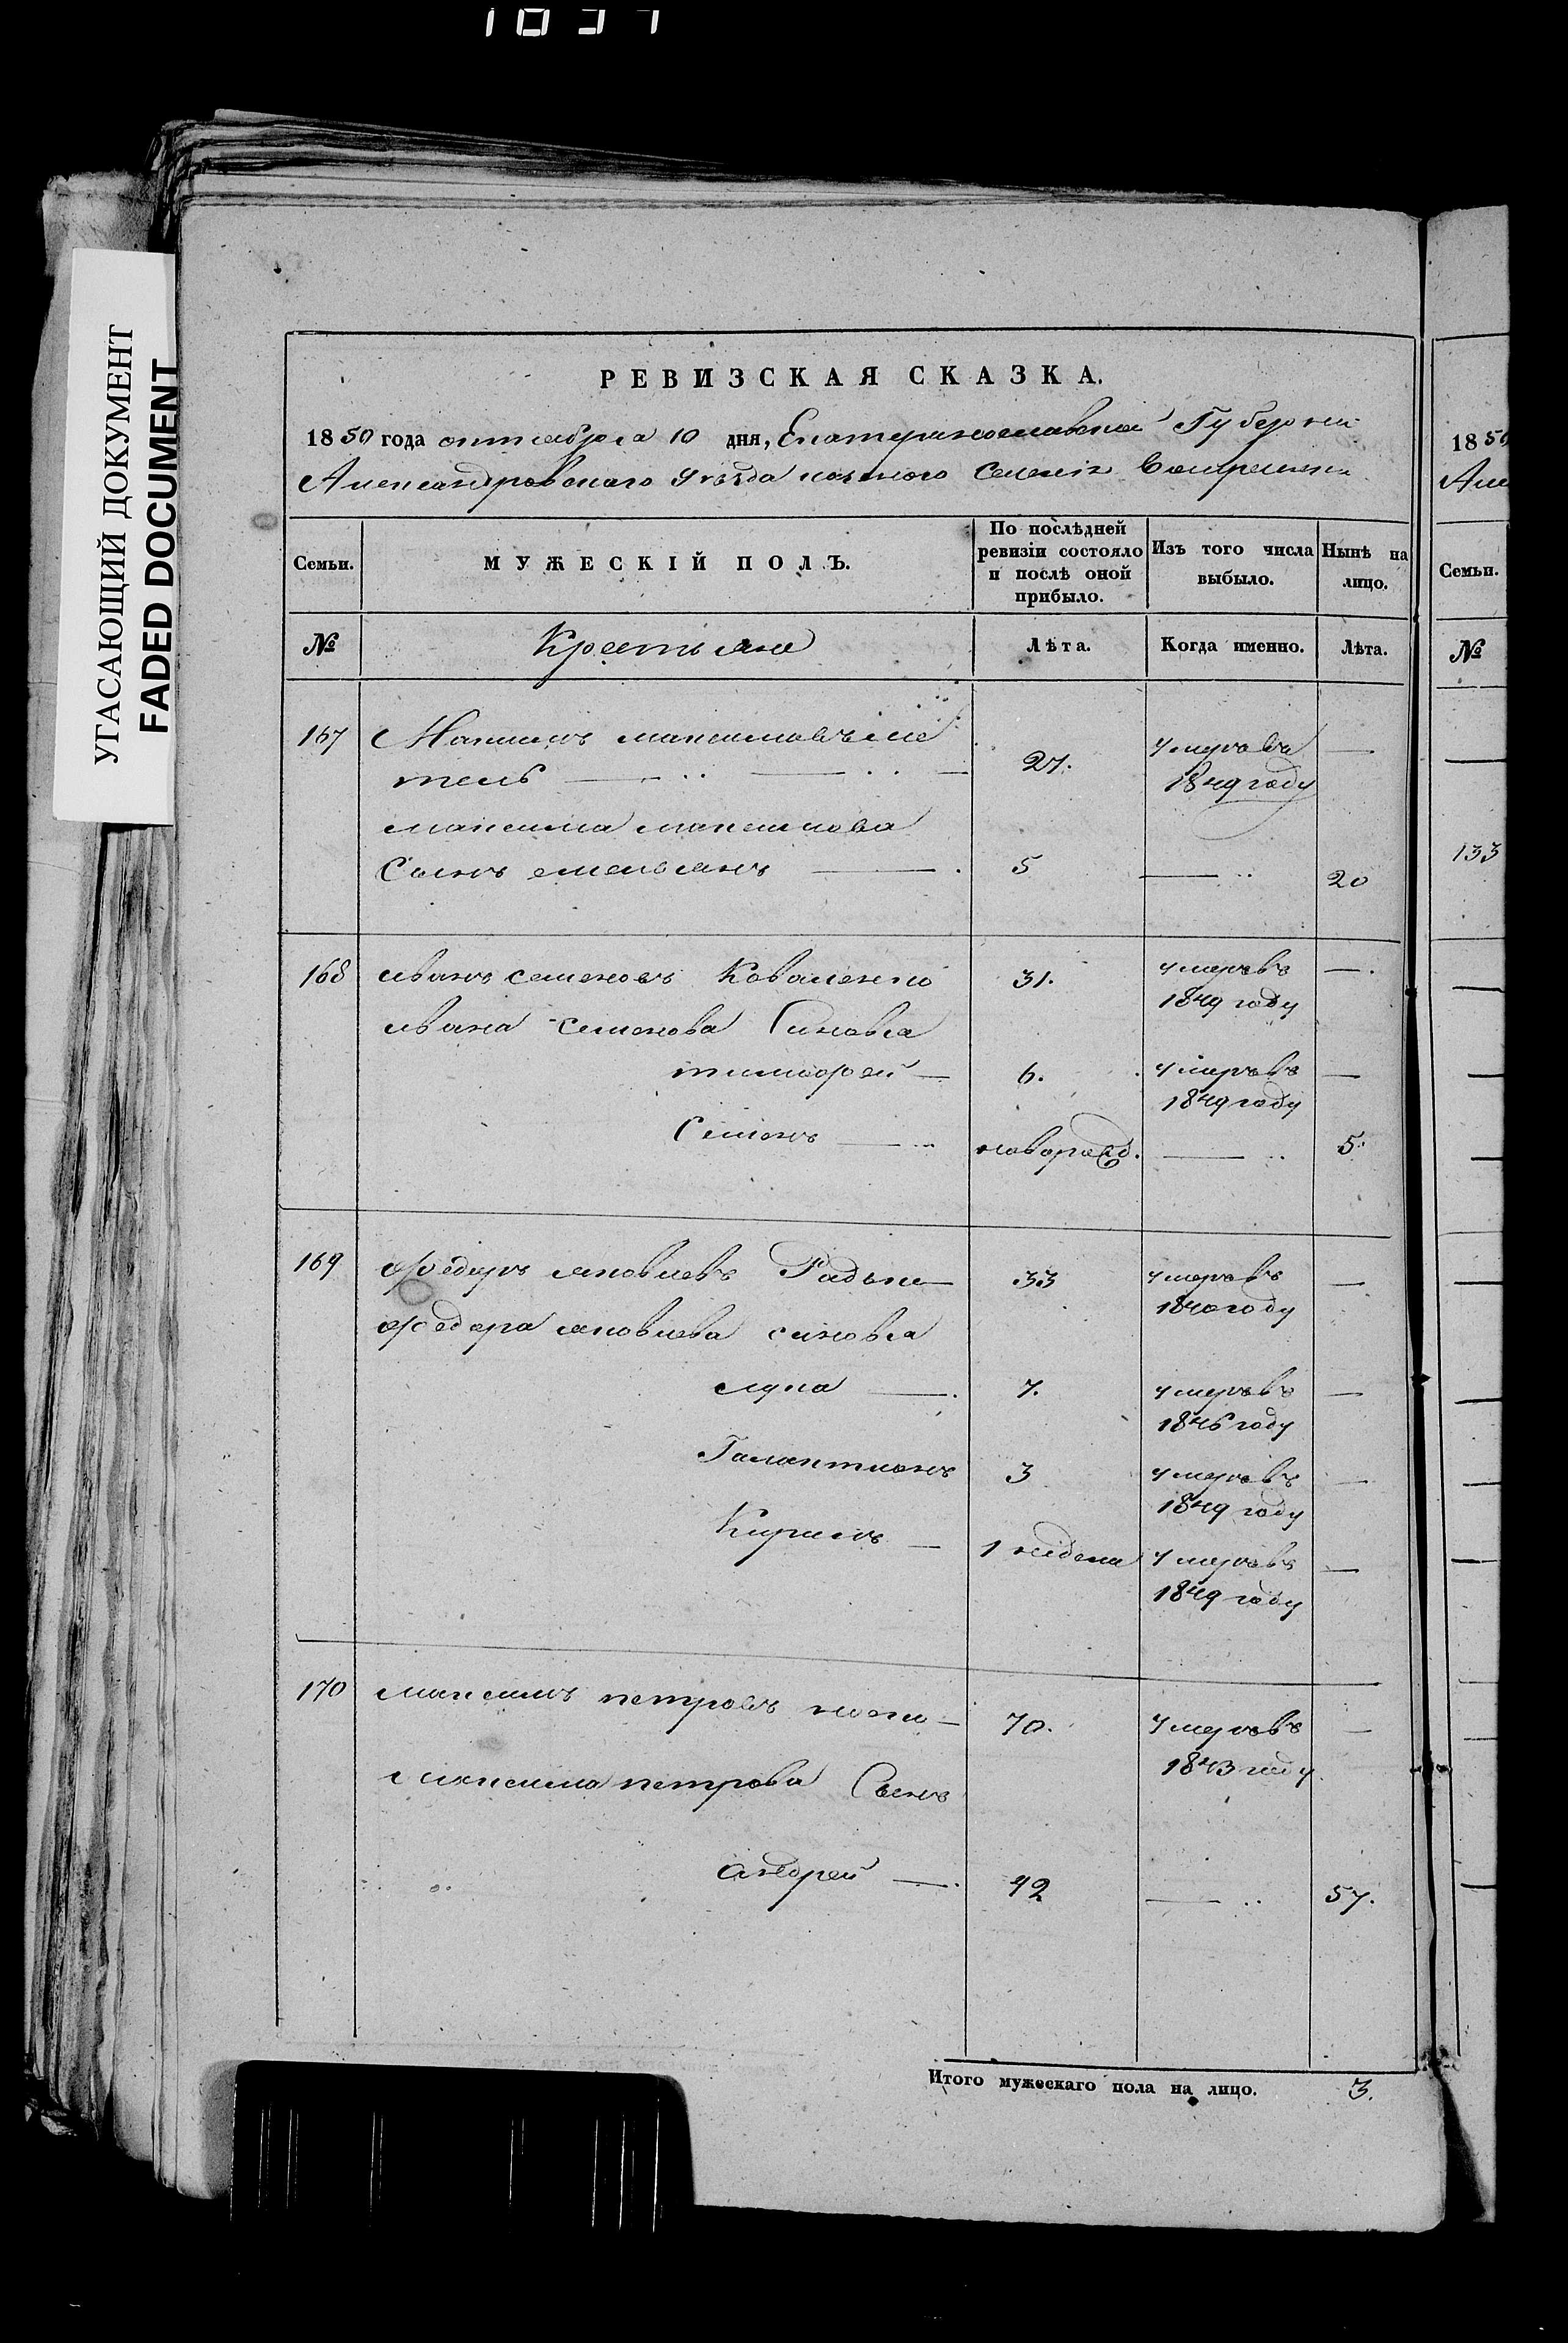 1037
УГАСАЮЩИЙ ДОКУМЕНТ
FADED DOCUMENT
РЕВИЗСКАЯ СКАЗКА.
1850 года октября 10 дня, Екатеринославской Губернии
Александровского уезда казеного Селения
Семьи. МУЖЕСКІЙ ПОЛЪ. По послѣдней ревизіи состояло и послѣ оной прибыло. Изъ того числа выбыло. Нынѣ на лицо.
№ Крестьяне Лѣта. Когда именно. Лѣта.
167 Максимъ максимовъ
тель 27. умеръ въ —
1849 году
максима максимова
Сынъ емельянъ — 5 — 20
168 иванъ семеновъ Коваленко 31. умеръ въ —
1849 году
ивана семенова Синовья
тимофей — 6. умеръ въ —
1849 году
Семенъ — новорожд. — 5.
169 федоръ яковлевъ Радько 33 умеръ въ —
1840 году
федора яковлева синовья
лука — 7. умеръ въ —
1846 году
Галактионъ 3 умеръ въ —
1849 году
Кирилъ — 1 недели умеръ въ —
1849 году
170 максимъ петровъ 70. умеръ въ —
1843 году
максима петрова Сынъ
андрей — 42 — 57.
Итого мужескаго пола на лицо. 3.
1850
Але
Семьи.
№
133